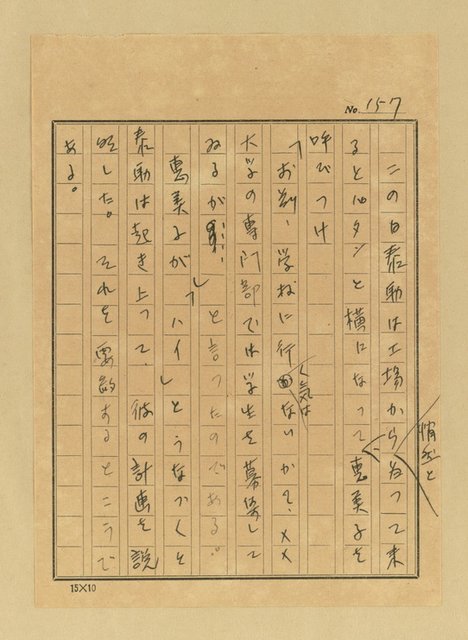 No. 157
悄然と
この日泰助は工場から帰って来
るとバタンと横になって恵美子を
呼びつけ
「お前、学校に行く気はないかて、××
大学の専門部では学生を募集して
ゐるが」と言ったのである。
恵美子が「ハイ」とうなづくと
泰助は起き上って、彼の計画を説
明した。それを要約するとこうで
ある。
15×10